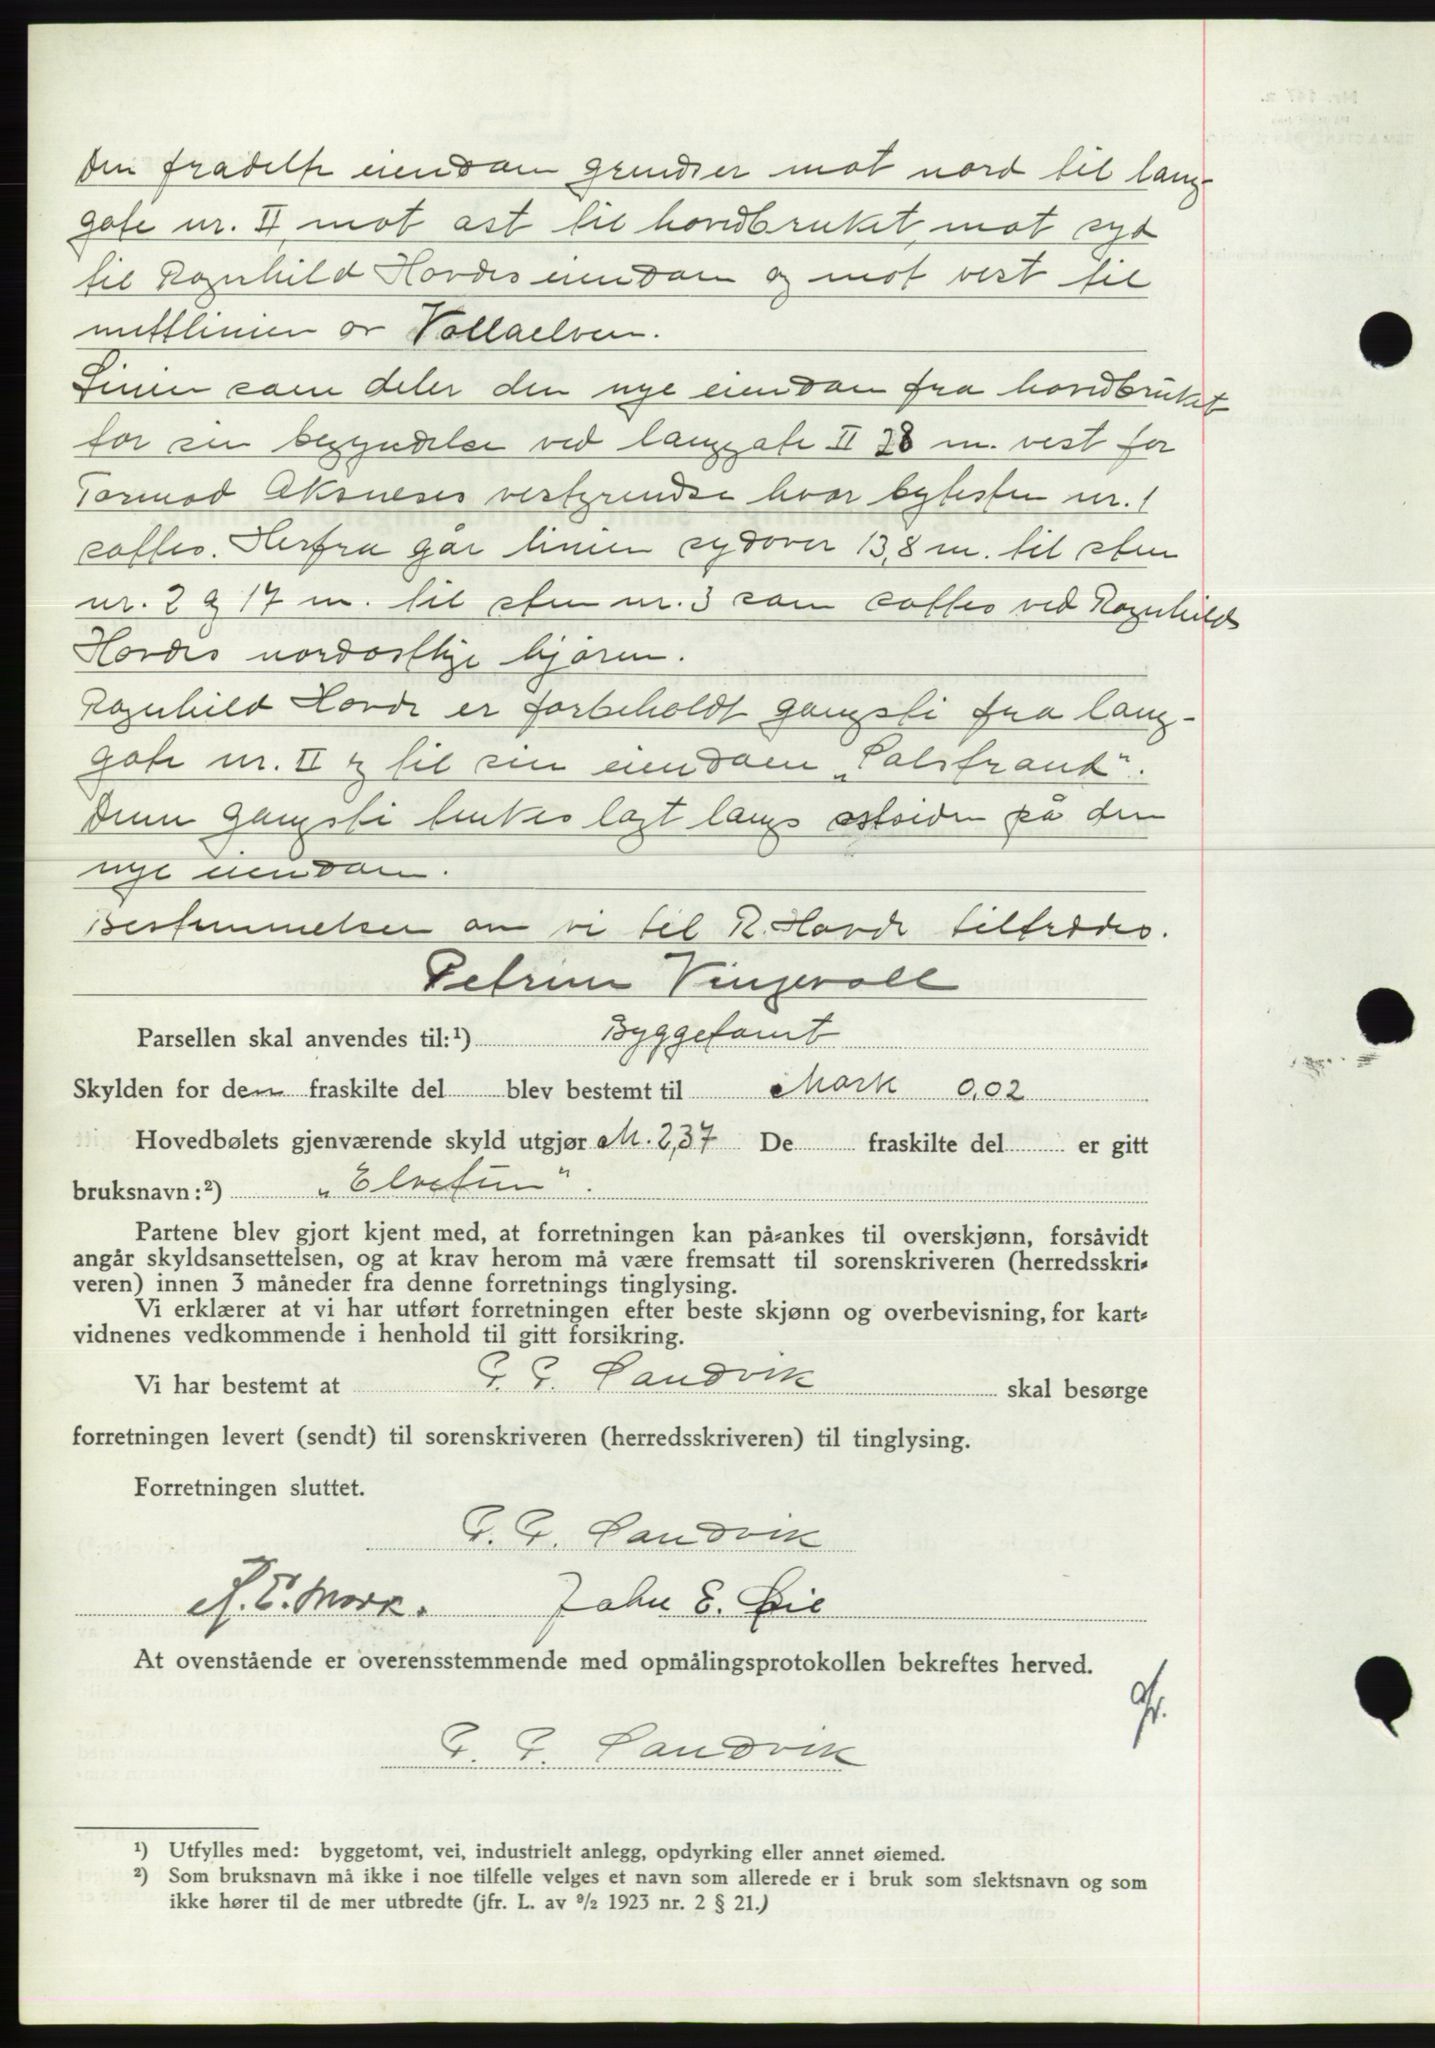 Den fradelte eiendom grendser mot nord til lang-
gate nr. II, mot øst til hovedbruket, mot syd
til Ragnhild Hovdes eiendom og mot vest til
mittlinien av Vollaelven.
Linien som deler den nye eiendom fra hovedbruket
tar sin begyndelse ved langgate II 28 m. vest for
Tormod Aksneses vestgrendse hvor bytesten nr. 1
sattes. Herfra går linien sydover 13,8 m. til sten
nr. 2 og 17 m. til sten nr. 3 som sattes ved Ragnhilds
Hovdes nordostlige hjørne.
Ragnhild Hovde er forbeholdt gangsti fra lang-
gate nr. II og til sin eiendom "Solstrand".
Denne gangsti tenkes lagt langs østsiden på den
nye eiendom.
Bestemmelsen om vi til R. Hovde tiltredes.
Petrine Vingevoll
Parsellen skal anvendes til:¹) Byggetomt
Skylden for den fraskilte del blev bestemt til Mark 0,02
Hovedbølets gjenværende skyld utgjør M. 2,37 De fraskilte del er gitt
bruksnavn:²) "Elvetun".
Partene blev gjort kjent med, at forretningen kan på-ankes til overskjønn, forsåvidt
angår skyldsansettelsen, og at krav herom må være fremsatt til sorenskriveren (herredsskri-
veren) innen 3 måneder fra denne forretnings tinglysing.
Vi erklærer at vi har utført forretningen efter beste skjønn og overbevisning, for kart-
vidnenes vedkommende i henhold til gitt forsikring.
Vi har bestemt at P. P. Sandvik skal besørge
forretningen levert (sendt) til sorenskriveren (herredsskriveren) til tinglysing.
Forretningen sluttet.
P. P. Sandvik
A. E. Mork. John E. Øie
At ovenstående er overensstemmende med opmålingsprotokollen bekreftes herved.
P. P. Sandvik
¹) Utfylles med: byggetomt, vei, industrielt anlegg, opdyrking eller annet øiemed.
²) Som bruksnavn må ikke i noe tilfelle velges et navn som allerede er i bruk som slektsnavn og som
ikke hører til de mer utbredte (jfr. L. av ⁹/₂ 1923 nr. 2 § 21.)